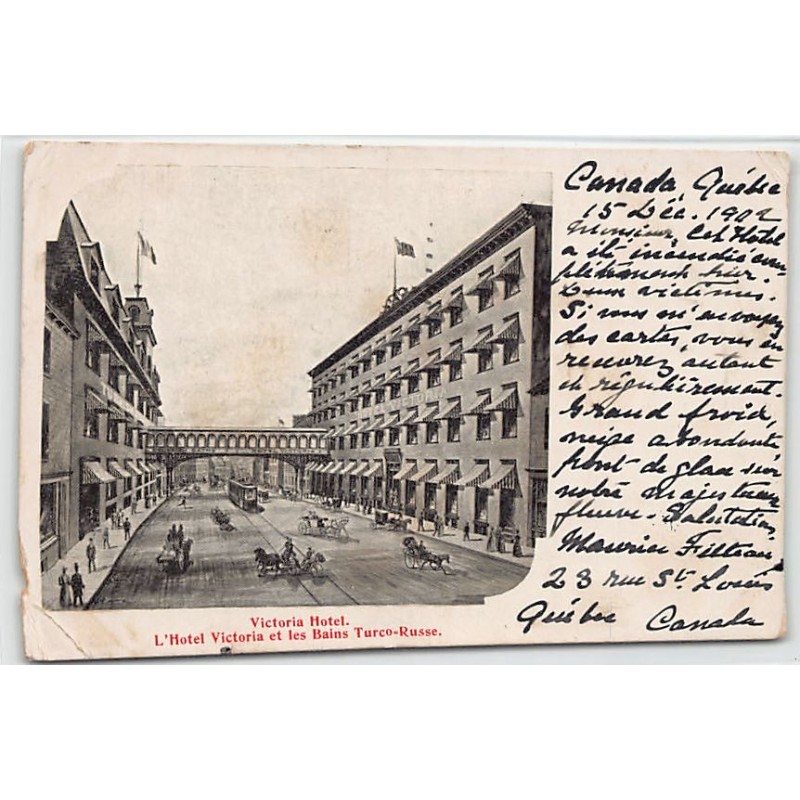 Canada, Québec
15 Déc. 1902
Monsieur, Cet Hotel
a été incendié com-
plètement hier.
Deux victimes.
Si vous m'envoyez
des cartes, vous en
recevrez autant
et régulièrement.
Grand froid,
neige abondante
pont de glace sur
notre majestueux
fleuve. Salutations
Maurice
23 rue St. Louis
Québec Canada
Victoria Hotel.
L'Hotel Victoria et les Bains Turco-Russe.